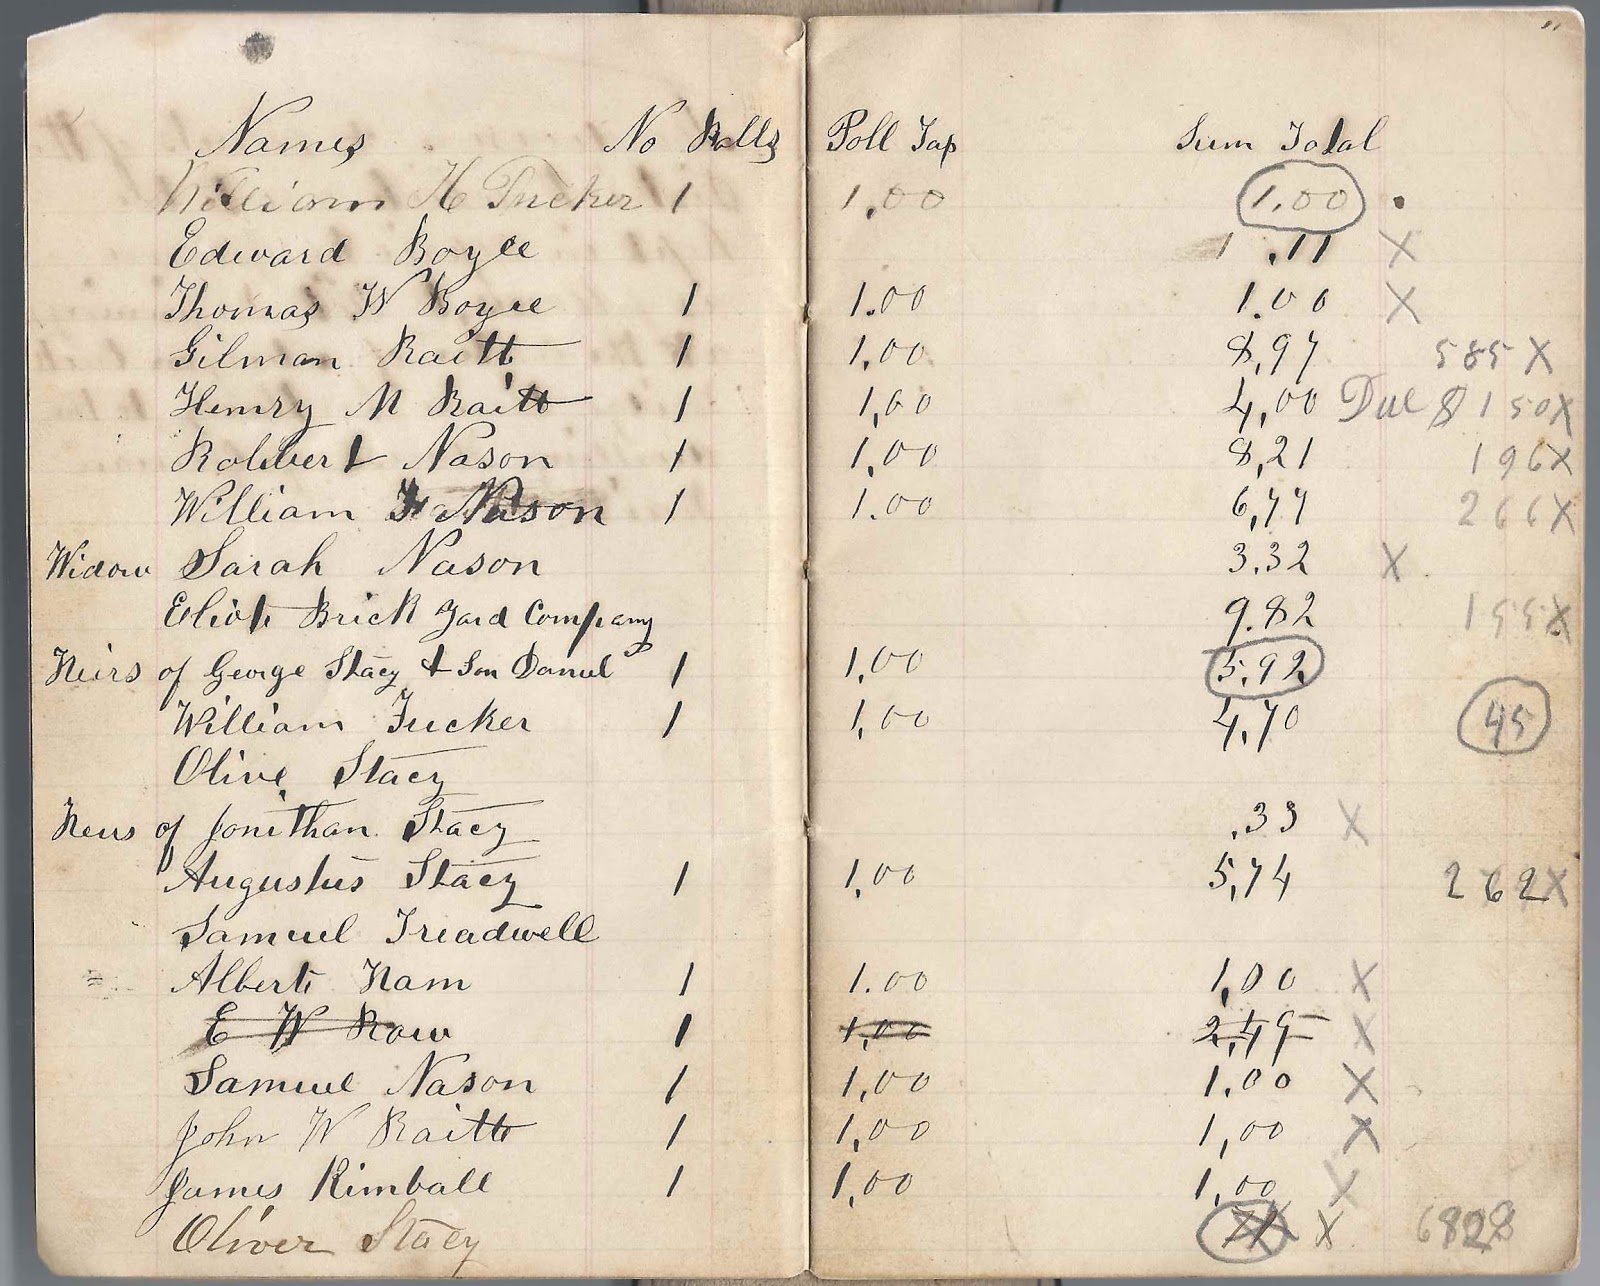 Names No Polls Poll Tax Sum Total
William H Tucker 1 1,00 1,00 .
Edward Boyce .11 X
Thomas W Boyce 1 1.00 1.00 X
Gilman Raitt 1 1,00 8,97 585 X
Henry M Raitt 1 1,00 4,00 Due $ 150 X
Robbert Nason 1 1,00 8,21 196 X
William Nason 1 1.00 6,77 266 X
Widow Sarah Nason 3.32 X
Eliot Brick Yard Company 9.82 155 X
Heirs of George Stacy & Son Daniel 1 1,00 5,92
William Tucker 1 1,00 4,70 45
Olive Stacy
Heirs of Jonithan Stacy .33 X
Augustus Stacy 1 1,00 5,74 262 X
Samuel Treadwell
Albert Ham 1 1.00 1,00 X
E W Row 1 1,00 2,49 X
Samuel Nason 1 1,00 1.00 X
John W Raitt 1 1,00 1,00 X
James Kimball 1 1,00 1,00 X
Oliver Stacy X 6828